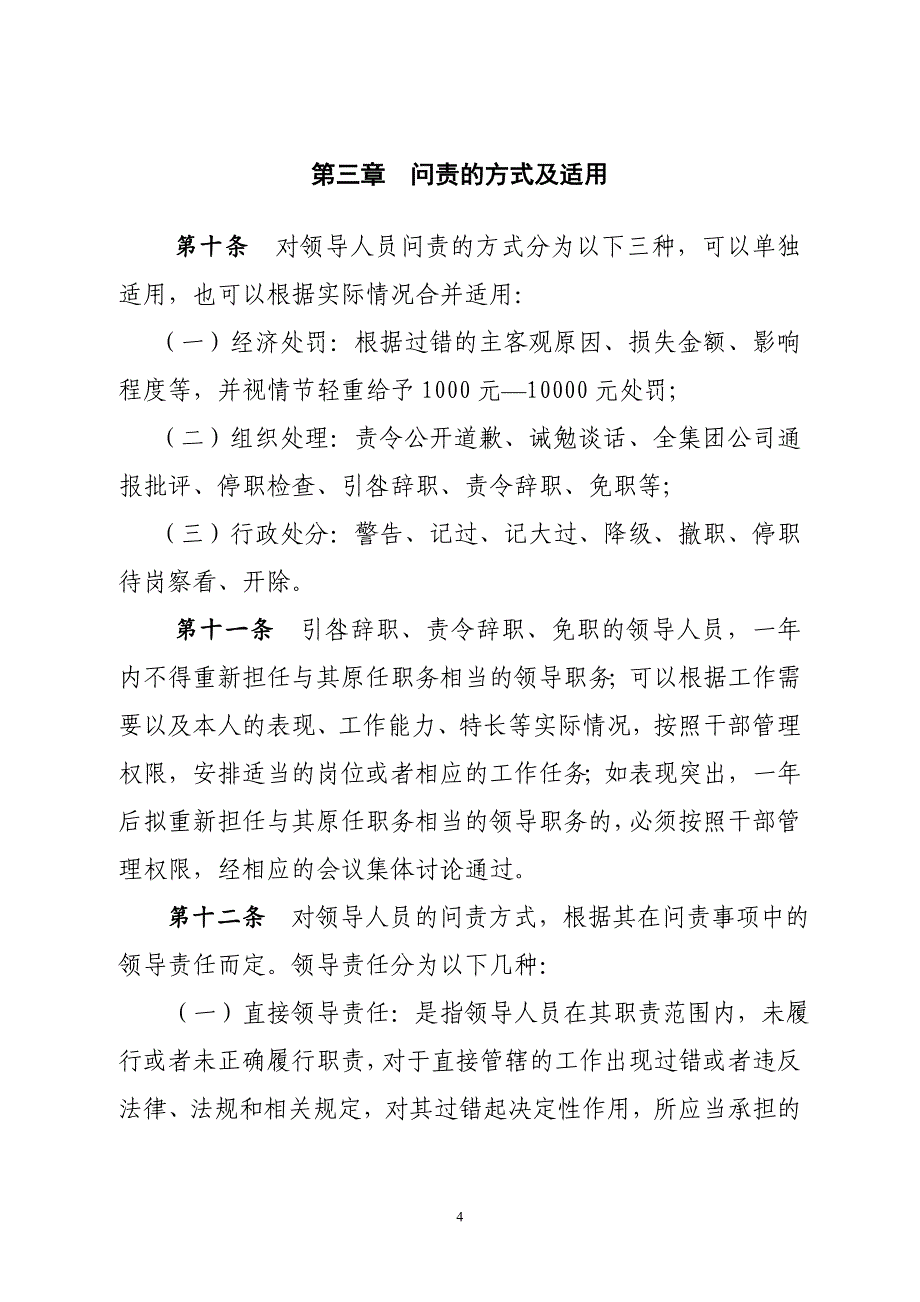 第三章　问责的方式及适用
第十条　对领导人员问责的方式分为以下三种，可以单独
适用，也可以根据实际情况合并适用：
（一）经济处罚：根据过错的主客观原因、损失金额、影响
程度等，并视情节轻重给予 1000 元—10000 元处罚；
（二）组织处理：责令公开道歉、诫勉谈话、全集团公司通
报批评、停职检查、引咎辞职、责令辞职、免职等；
（三）行政处分：警告、记过、记大过、降级、撤职、停职
待岗察看、开除。
第十一条　引咎辞职、责令辞职、免职的领导人员，一年
内不得重新担任与其原任职务相当的领导职务；可以根据工作需
要以及本人的表现、工作能力、特长等实际情况，按照干部管理
权限，安排适当的岗位或者相应的工作任务；如表现突出，一年
后拟重新担任与其原任职务相当的领导职务的，必须按照干部管
理权限，经相应的会议集体讨论通过。
第十二条　对领导人员的问责方式，根据其在问责事项中的
领导责任而定。领导责任分为以下几种：
（一）直接领导责任：是指领导人员在其职责范围内，未履
行或者未正确履行职责，对于直接管辖的工作出现过错或者违反
法律、法规和相关规定，对其过错起决定性作用，所应当承担的
4